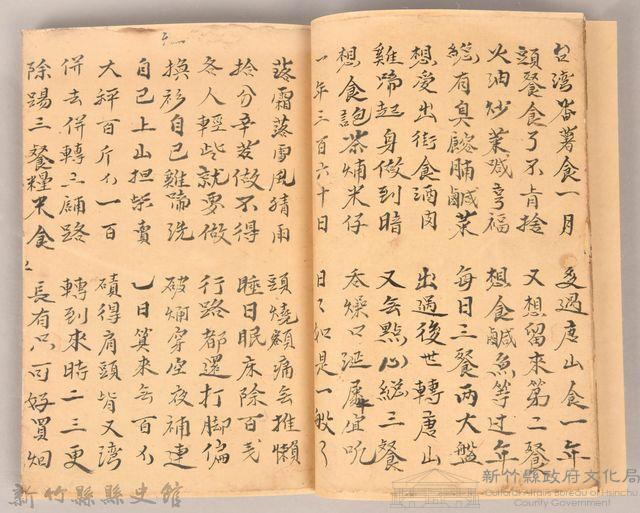 台湾番薯食一月 多過唐山食一年
頭餐食了不肯捨 又想留來第二餐
火油炒菜喊享福 想食鹹魚等过年
總有臭腩鹹菜 每日三餐两大盤
想愛出街食酒肉 出過後世轉唐山
雞啼起身做到暗 又無點心總三餐
想食泡茶煏米仔 吞燥口涎
一年三百六十日 日日如是一般了
落霜落雪風晴雨 頭燒額痛無推懶
拾分辛苦做不得 睡日眠床除百
各人輕些就要做 行路都還打脚偏
換衫自己雞啼洗 破爛穿坐夜補連
自己上山担柴賣 乙日算來無百
大秤百斤一百 磧得肩頭皆又湾
併去併轉三舖路 轉到來時二三更
除踢三餐糧米食 長有只可好買烟
新竹縣縣史館
新竹縣政府文化局
Cultural Affairs Bureau of Hsinchu County Government